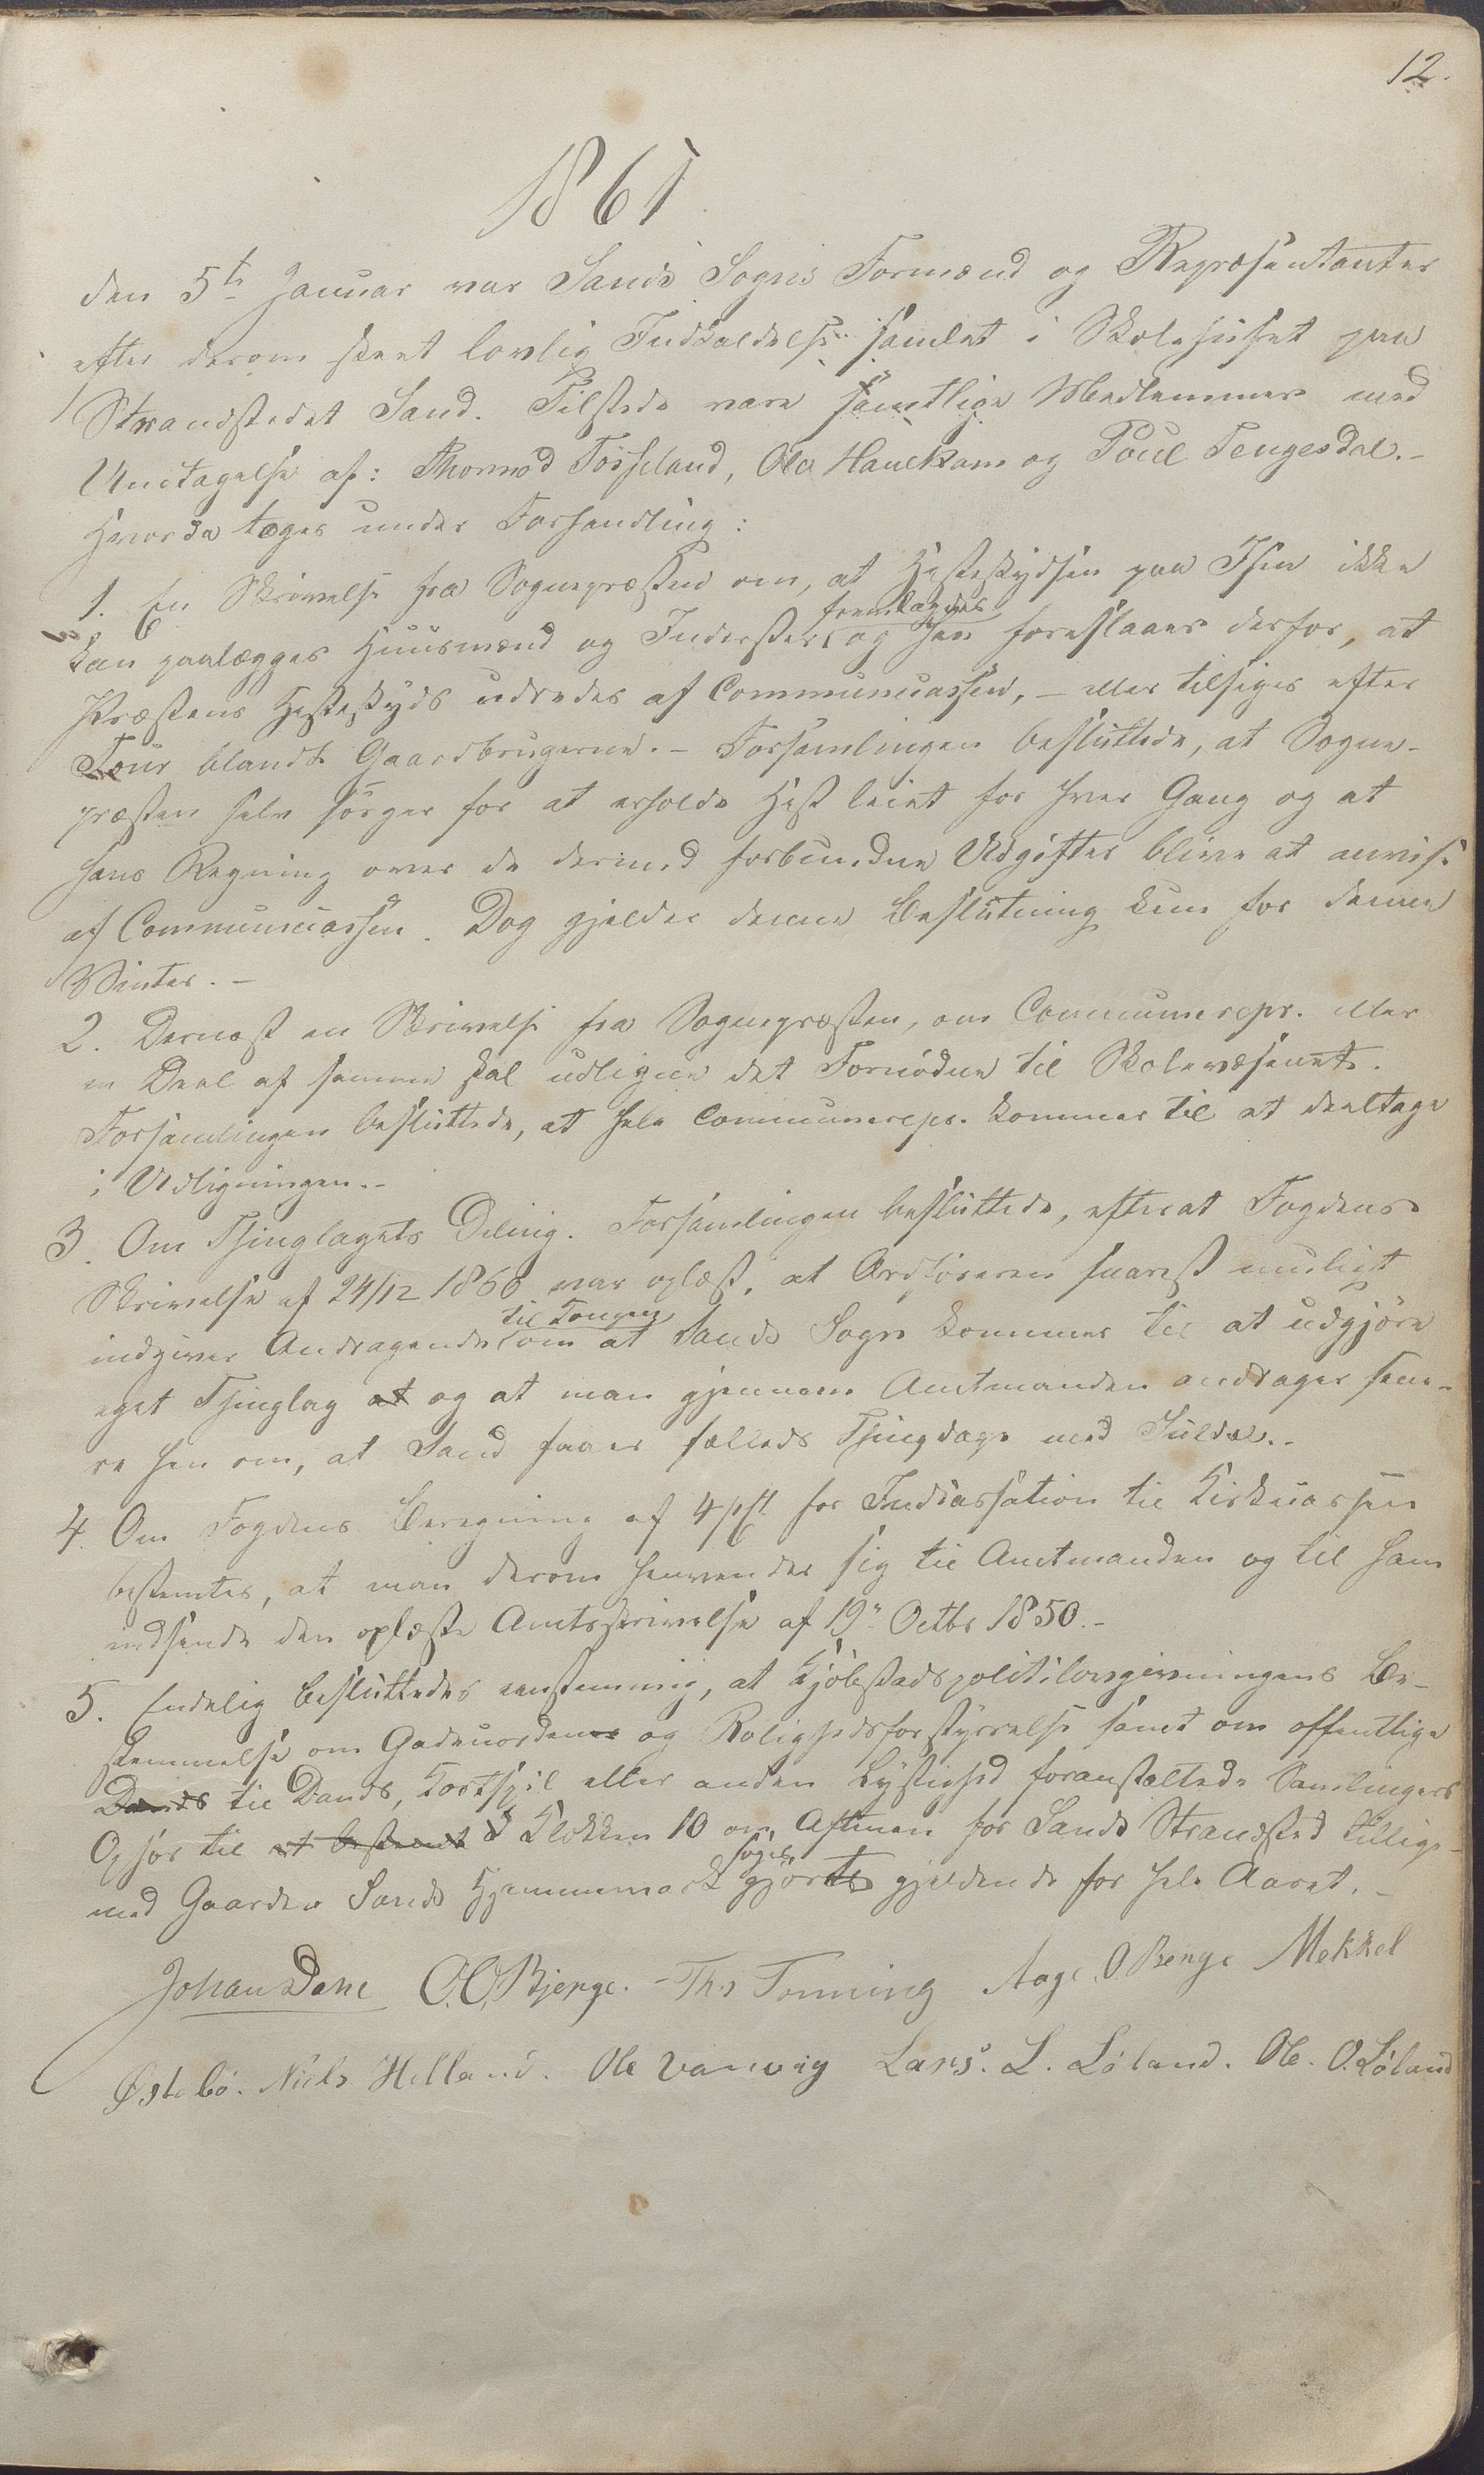 12.
1861
den 5te Januar var Sands Sogns Formænd og Repræsentanter
efter derom skeet lovlig Indkaldelse samlet i Skolehuset paa
Strandstedet Sand. Tilstede vare samtlige Medlemmer med
Undtagelse af: Thormod Fosseland, Ole Haukam og Poul Tengesdal.-
Hvorda toges under Forhandling:
1. En Skrivelse fra Sognepræsten om, at Hesteskydsen paa Isen ikke
fremlagdes
kan paalægges Huusmænd og Inderster, og han foreslaaer derfor, at
Præstens Hesteskyds udredes af Communecassen, - eller tilsiges efter
Tour blandt Gaardbrugerne. - Forsamlingen besluttede, at Sogne-
præsten selv sørger for at erholde Hest leiet for hver Gang og at
hans Regning over de dermed forbundne Udgifter blive at anvise
af Communecassen. Dog gjelder denne Beslutning kun for denne
Vinter. -
2. Dernæst en Skrivelse fra Sognepræsten, om Communerepr. eller
en Deel af samme skal udligne det Fornødne til Skolevæsenet.
Forsamlingen besluttede, at hele Communerepr. kommer til at deeltage
i Udligningen.-
3. Om Thinglagets Deling. Forsamlingen besluttede, efterat Fogdens
Skrivelse af 24/12 1860 var oplæst, at Ordføreren snarest muligt
til Kongen
indgiver Andragende om at Sands Sogn kommer til at udgjøre
eget Thinglag at og at man gjennem Amtmanden andrager sene-
re hen om, at Sand faaer fælleds Thingdage med Suldal.-
4. Om Fogdens Beregning af 4 pct for Indcassation til Kirkecassen
bestemtes, at man derom henvender sig til Amtmanden og til ham
indsende den oplæste Amtsskrivelse af 19de Octbr 1850.-
5. Endelig besluttedes eenstemmig, at Kjøbstadspolitilovgivningens Be-
stemmelse om Gadeuordener og Rolighedsforstyrrelse samt om offentlige
Dands til Dands, Kortspil eller anden Lystighed foranstaltede Samlingers
Ophør til et bestemt Klokken 10 om Aftenen for Sands Strandsted tillige-
søges
med Gaarden Sands Hjemmemark gjørtes gjeldende for hele Aaret. -
Johan Dane O.O. Bjerge. - Ths Tonning Aage O. Berge Mekkel
Østebö. Niels Helland. Ole Vanvig Lars. L. Löland. Ole. O. Löland